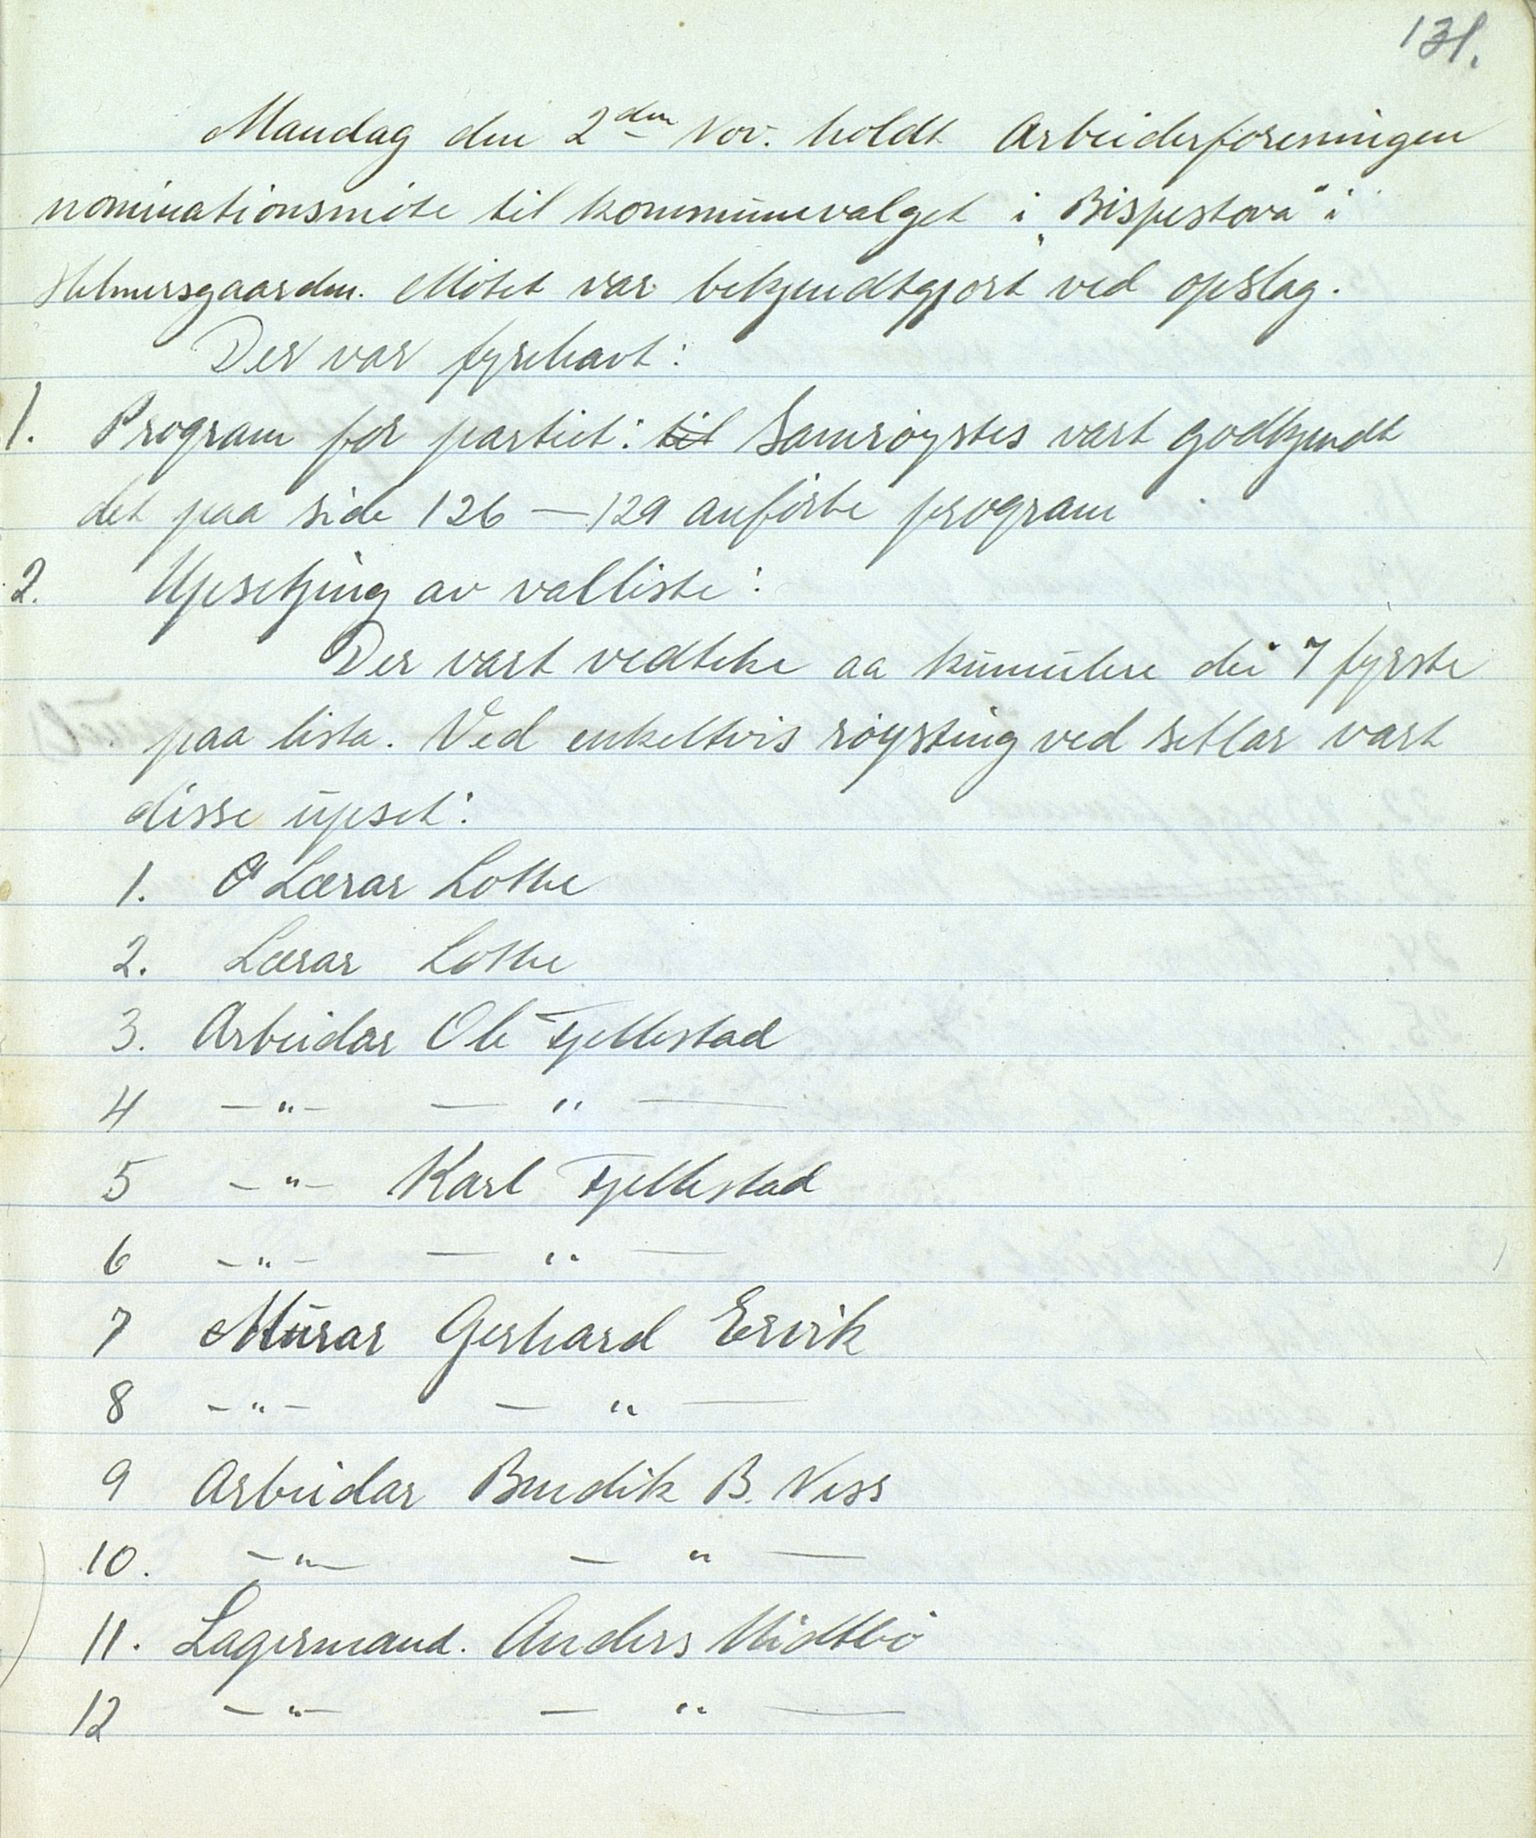 131.
Mandag den 2den Nov. holdt Arbeiderforeningen
nominationsmöte til kommunevalget i „Bispestova" i
Helmersgaarden. Mötet var bekjendtgjort ved opslag.
Der var fyrehavt:
1. Program for partiet: til Samröystes vart godkjendt
det paa side 126 — 129 anförte program
2. Upsetjing av valliste:
Der vart vedteke aa kumulere dei 7 fyrste
paa lista. Ved enkeltvis röysting ved setlar vart
disse upset:
1. O Lærar Lothe
2. Lærar Lothe
3. Arbeidar Ole Fjellestad
4 — " — — " —
5 — " — Karl Fjellestad
6 — " — — " —
7 Murar Gerhard Ervik
8 — " — — " —
9 Arbeidar Bendik B. Ness
10. — " — — " —
11. Lagermand. Anders Midtbö
12 — " — — " —